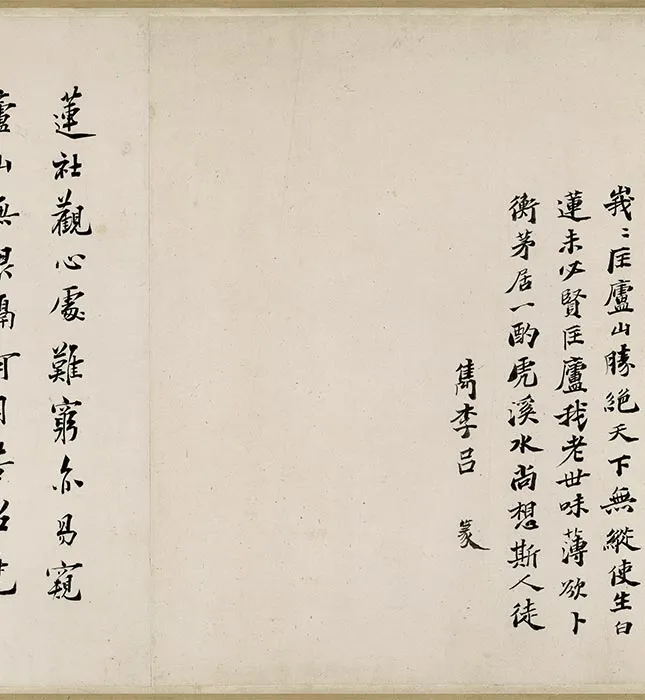 峩〻匡廬山勝絕天下無縱使生白
蓮未必賢匡廬我老世味薄欲卜
衡茅居一酌虎溪水尚想斯人徒
雋李呂 篆
蓮社觀心處難窮亦易窺
廬山無